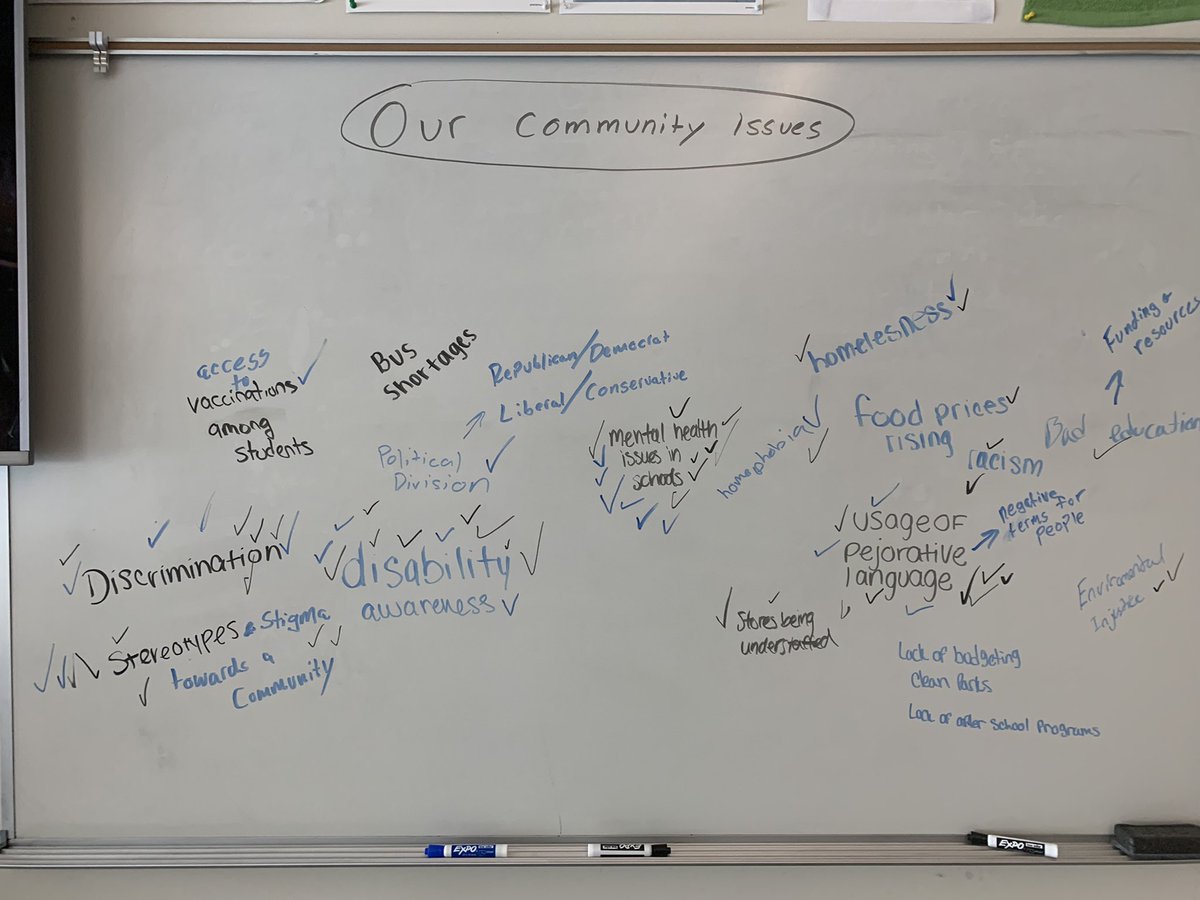 Our Community Issues
access
to
vaccinations
among
students
Bus
shortages
Republican/Democrat
Liberal/Conservative
Political
Division
mental health
issues in
schools
homelesness
homophobia
food prices
rising
racism
Funding &
resources
Bad education
Discrimination
disability
awareness
Stereotypes & Stigma
towards a
Community
usage of
pejorative
language
negative
terms for
people
Stores being
understaffed
Enviromental
Injustice
Lack of budgeting
Clean Parks
Lack of after school Programs
EXPO
EXPO